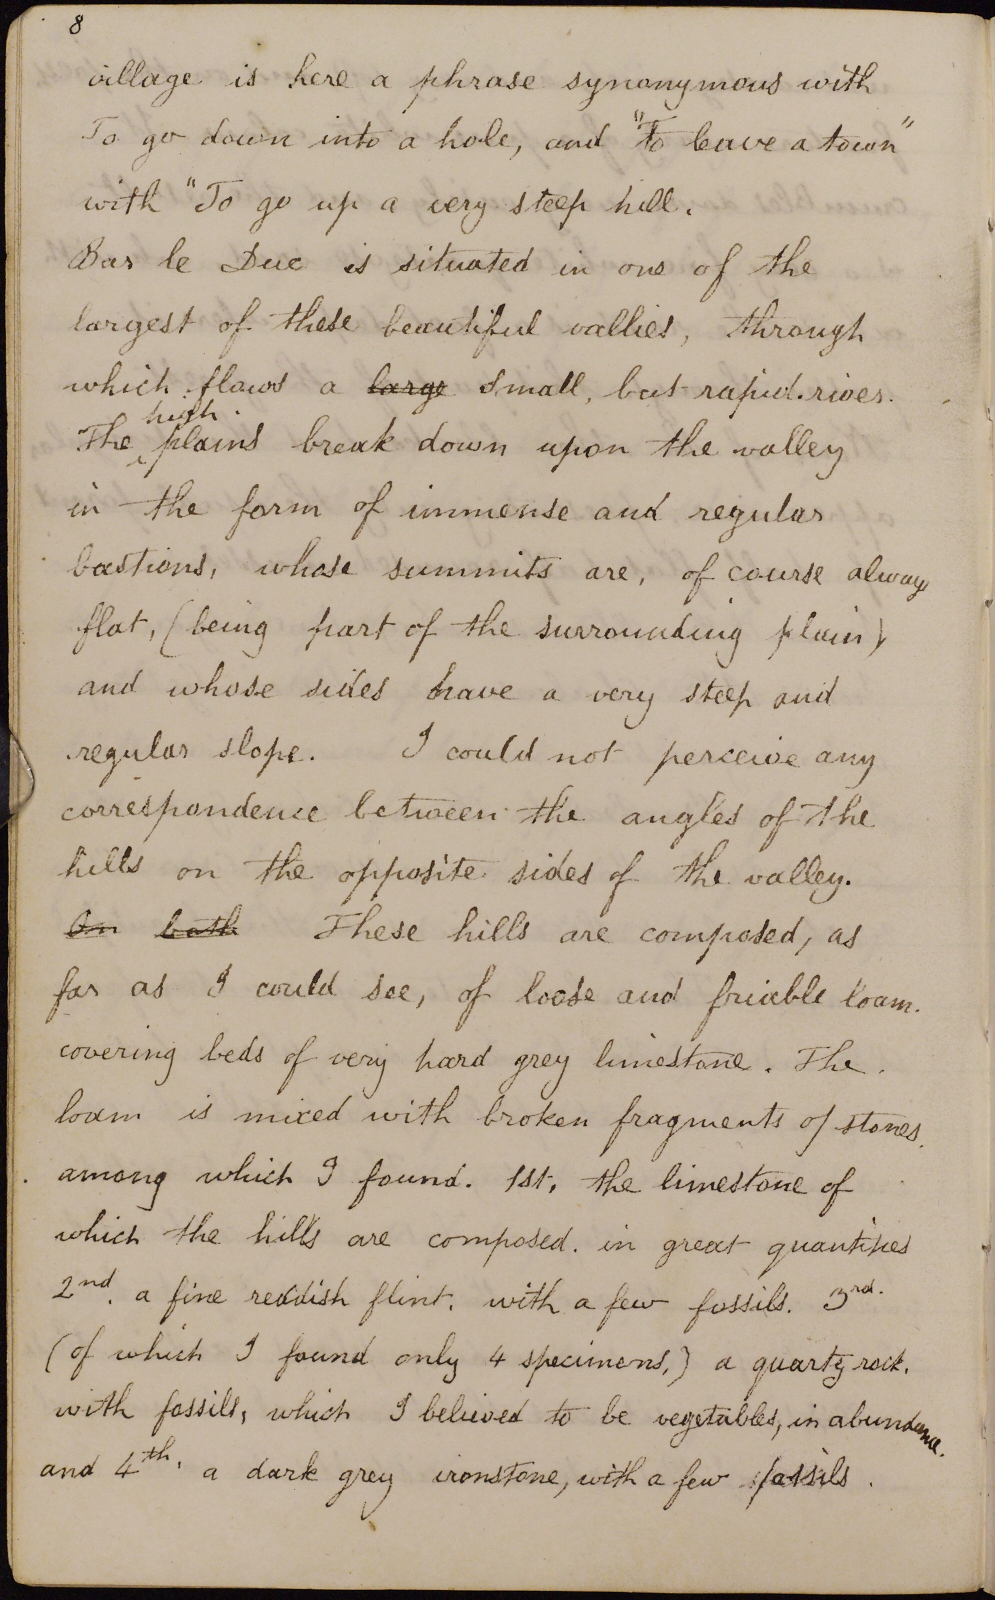 8
village is here a phrase synonymous with
To go down into a hole, and "To leave a town"
with "To go up a very steep hill.
Bar le Duc is situated in one of the
largest of these beautiful vallies, through
which flows a large small, but rapid river.
high
The plains break down upon the valley
in the form of immense and regular
bastions, whose summits are, of course always
flat, (being part of the surrounding plain)
and whose sides have a very steep and
regular slope. I could not perceive any
correspondence between the angles of the
hills on the opposite sides of the valley.
On both These hills are composed, as
far as I could see, of loose and friable loam.
covering beds of very hard grey limestone. The
loam is mixed with broken fragments of stones,
among which I found. 1st, the limestone of
which the hills are composed. in great quantities
2nd. a fine reddish flint. with a few fossils. 3rd.
(of which I found only 4 specimens,) a quartz rock.
with fossils, which I believed to be vegetables, in abundance.
and 4th, a dark grey ironstone, with a few fossils.